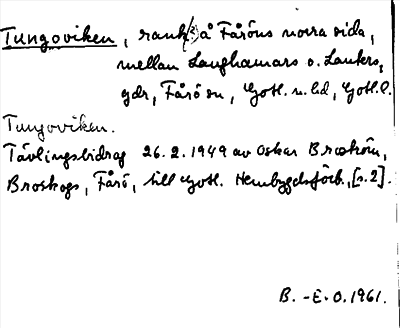 Tungoviken, rank(?) å Fåröns norra sida,
mellan Langhamars o. Lauters,
gdr, Fårö sn, Gotl. n. hd, Gotl. l.
Tungoviken.
Tävlingsbidrag 26.2.1949 av Oskar Broström,
Broskogs, Fårö, till Gotl. Hembygdsförb., [s. 2].
B.-E.O. 1961.